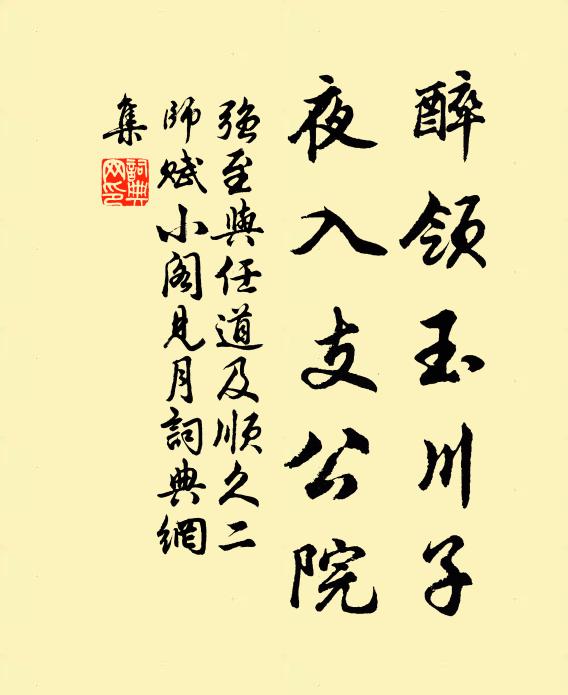 醉領玉川子
夜入支公院
強至與任道及順久二
師賦小閣見月詞典網
集
詞典網印